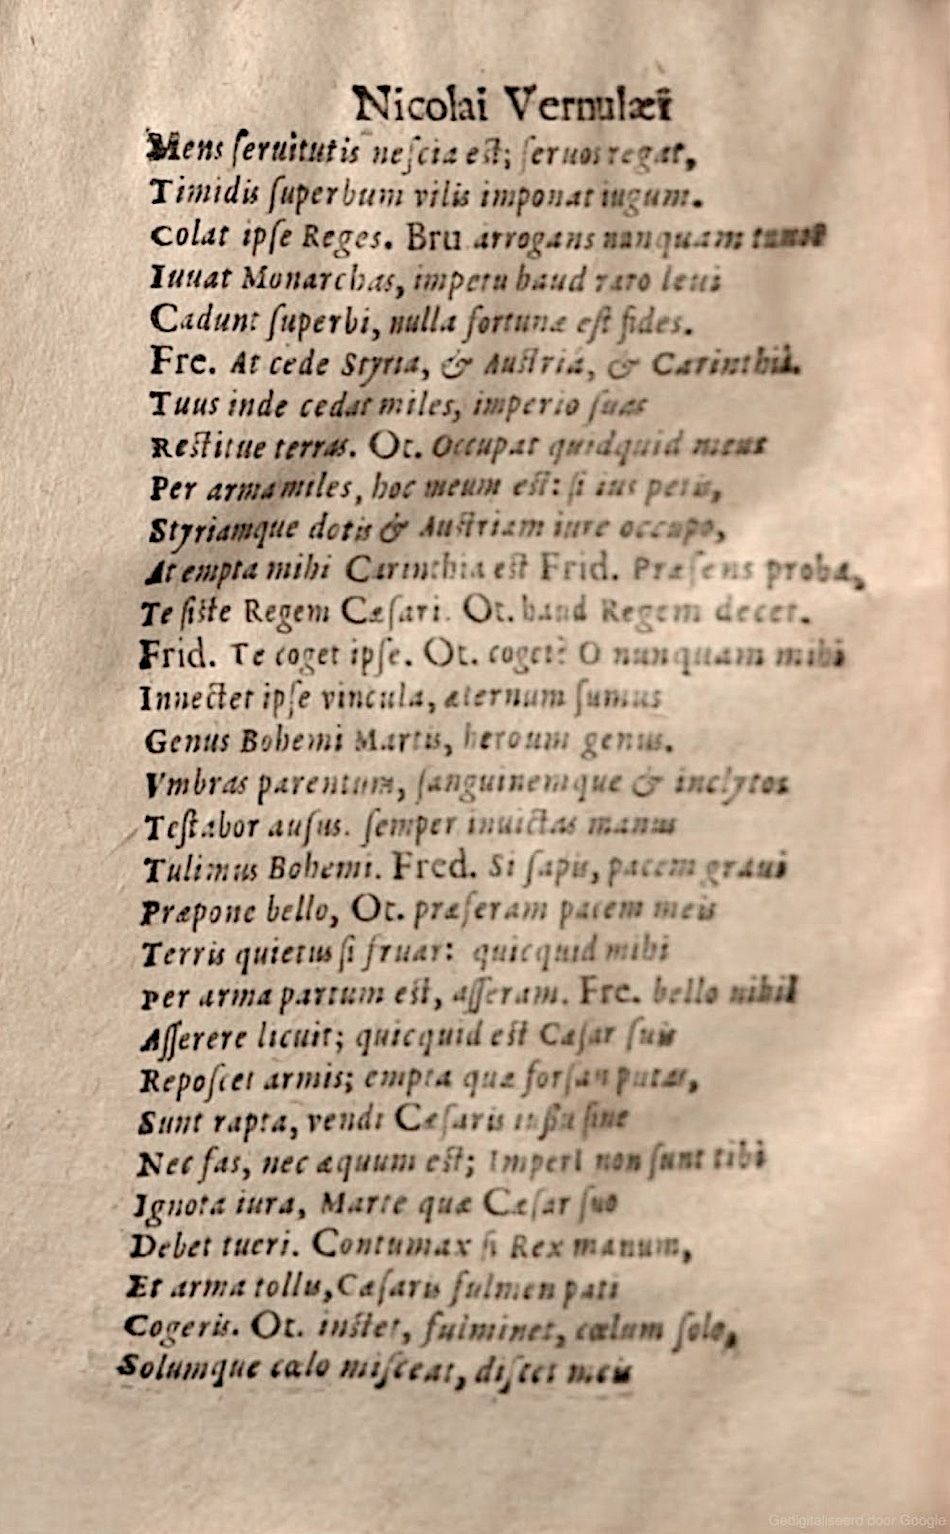 Nicolai Vernulæi
Mens ſeruitutis neſcia est; ſeruos regat,
Timidis ſuperbum vilis imponat iugum.
Colat ipſe Reges. Bru arrogans nunquam tumor
Iuuat Monarchas, impetu haud raro leui
Cadunt ſuperbi, nulla fortunæ eſt fides.
Fre. At cede Styria, & Austria, & Carinthia.
Tuus inde cedat miles, imperio ſuas
Restitue terras. Ot. Occupat quidquid meus
Per arma miles, hoc meum est: ſi ius petis,
Styriamque dotis & Austriam iure occupo,
At empta mihi Carinthia est Frid. Præſens proba,
Te ſiſte Regem Cæſari. Ot. haud Regem decet.
Frid. Te coget ipſe. Ot. coget? O nunquam mihi
Innectet ipſe vincula, æternum ſumus
Genus Bohemi Martis, heroum genus.
Vmbras parentum, ſanguinemque & inclytos
Teſtabor auſus. ſemper inuictas manus
Tulimus Bohemi. Fred. Si ſapis, pacem graui
Præpone bello, Ot. præferam pacem meis
Terris quietus ſi fruar: quicquid mihi
Per arma partum est, aſſeram. Fre. bello nihil
Aſſerere licuit; quicquid est Cæſar ſuis
Repoſcet armis; empta quæ forſan putas,
Sunt rapta, vendi Cæſaris iuſſu ſine
Nec fas, nec æquum est; Imperî non ſunt tibi
Ignota iura, Marte quæ Cæſar ſuo
Debet tueri. Contumax ſi Rex manum,
Et arma tollis, Cæſaris fulmen pati
Cogeris. Ot. instet, fulminet, cœlum ſolo,
Solumque cœlo miſceat, diſcet meis
Gedigitaliseerd door Google